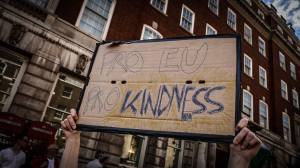 PRO EU
PRO KINDNESS